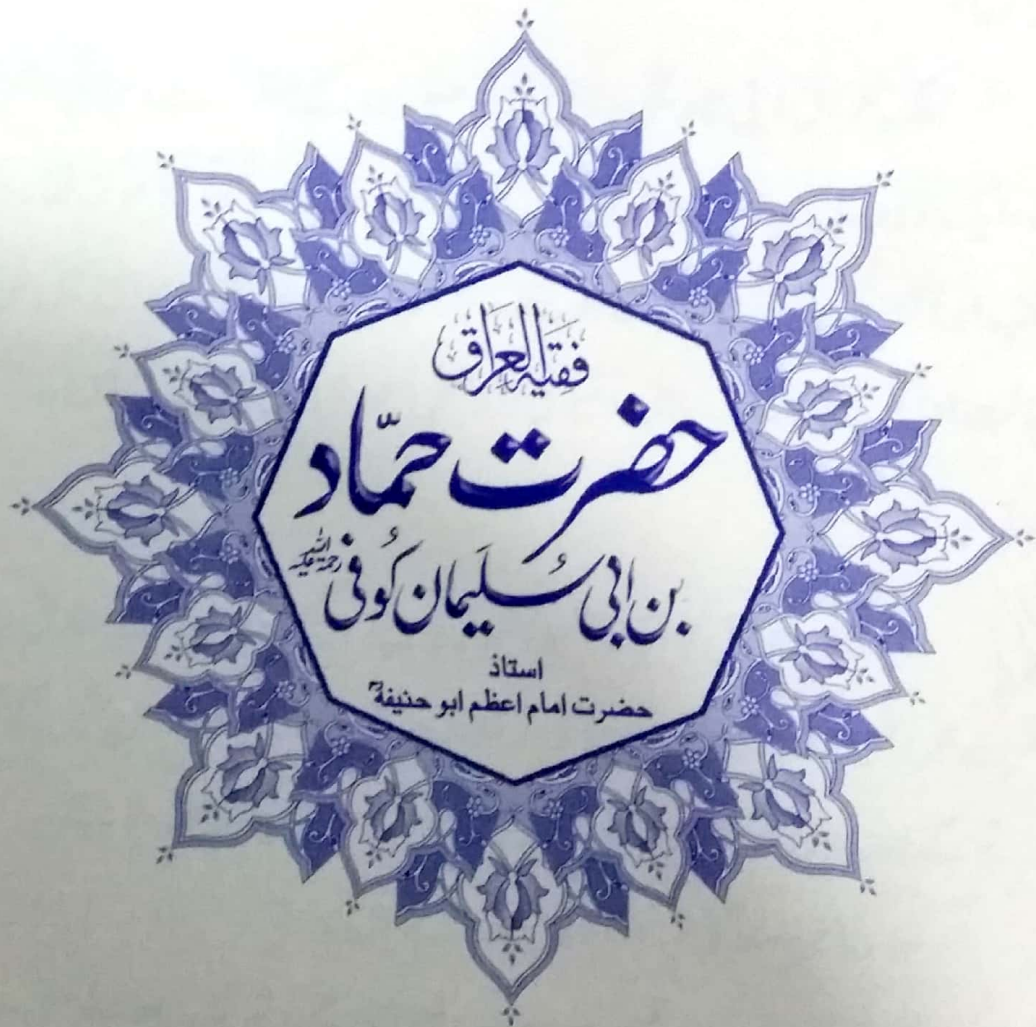 فقیہ العراق
حضرت حمّاد
بن ابی سُلیَمان کُوفی رحمۃ اللہ علیہ
استاذ
حضرت امام اعظم ابو حنیفہؒ